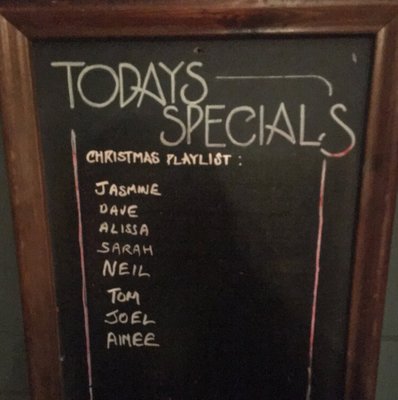 TODAYS
SPECIALS
CHRISTMAS PLAYLIST:
JASMINE
DAVE
ALISSA
SARAH
NEIL
TOM
JOEL
AIMEE